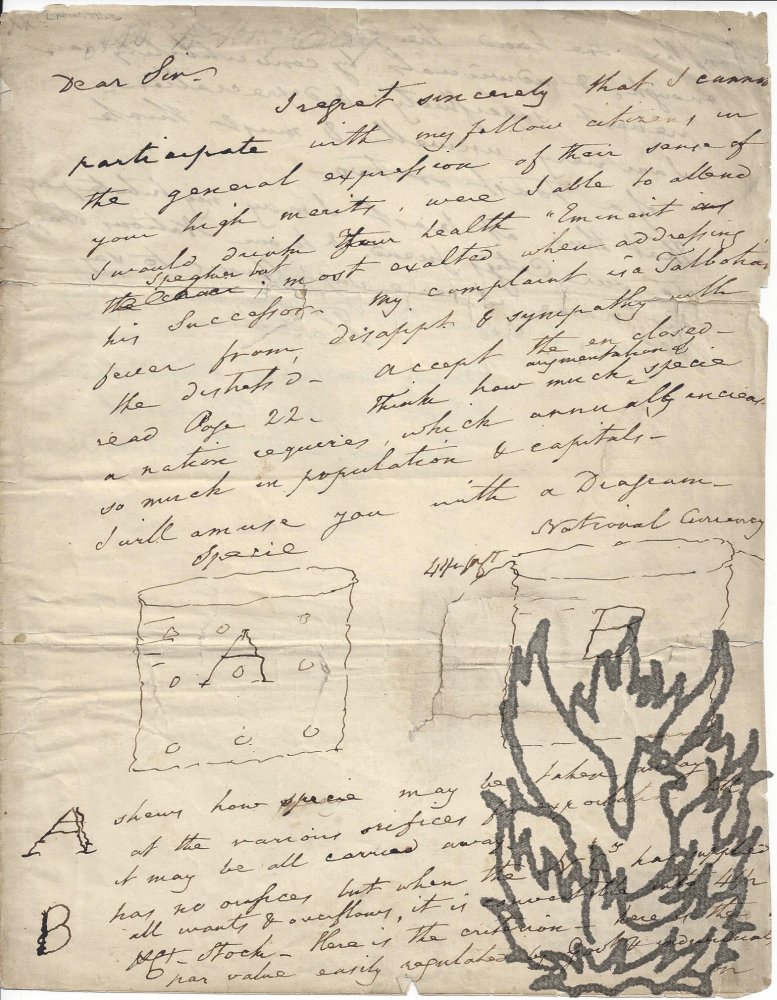 Dear Sir
I regret sincerely that I cannot
participate with my fellow citizens in
the general expression of their sense of
your high merits, were I able to attend
I would drink Your health "Eminent as
the Speaker but
most exalted when addressing
his Successor - My complaint is a Talbotian
fever from, disappt & sympathy with
the distress'd - accept the enclosed -
augmentation of
read Page 22 - Think how much specie
a nation requires, which annually increas
so much in population & capitals -
I will amuse you with a Diagram -
Specie
National Currency
44 pCt
A
B
A shews how specie may be taken away
at the various orifices for exportation
it may be all carried away -
B has no orifices but when the has supplied
all wants & overflows, it is convertible into
pCt - Stock - Here is the criterion - here is the
par value easily regulated by Govt & individual
on